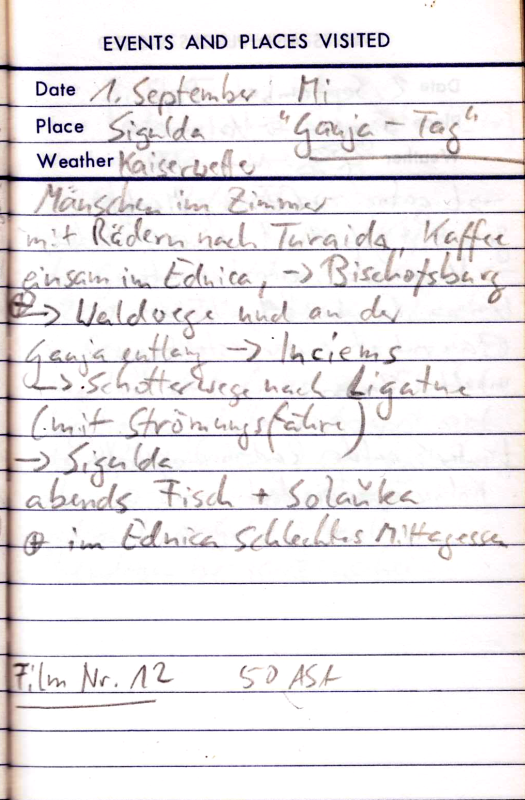 EVENTS AND PLACES VISITED
Date 1. September Mi
Place Sigulda "Gauja-Tag"
Weather Kaiserwetter
Mäuschen im Zimmer
mit Rädern nach Turaida, Kaffee
einsam im Ednica, -> Bischofsburg
⊕ -> Waldwege und an der
Gauja entlang -> Inciems
-> Schotterwege nach Ligatne
(mit Strömungsfähre)
-> Sigulda
abends Fisch + Solanka
⊕ im Ednica schlechtes Mittagessen
Film Nr. 12 50 ASA